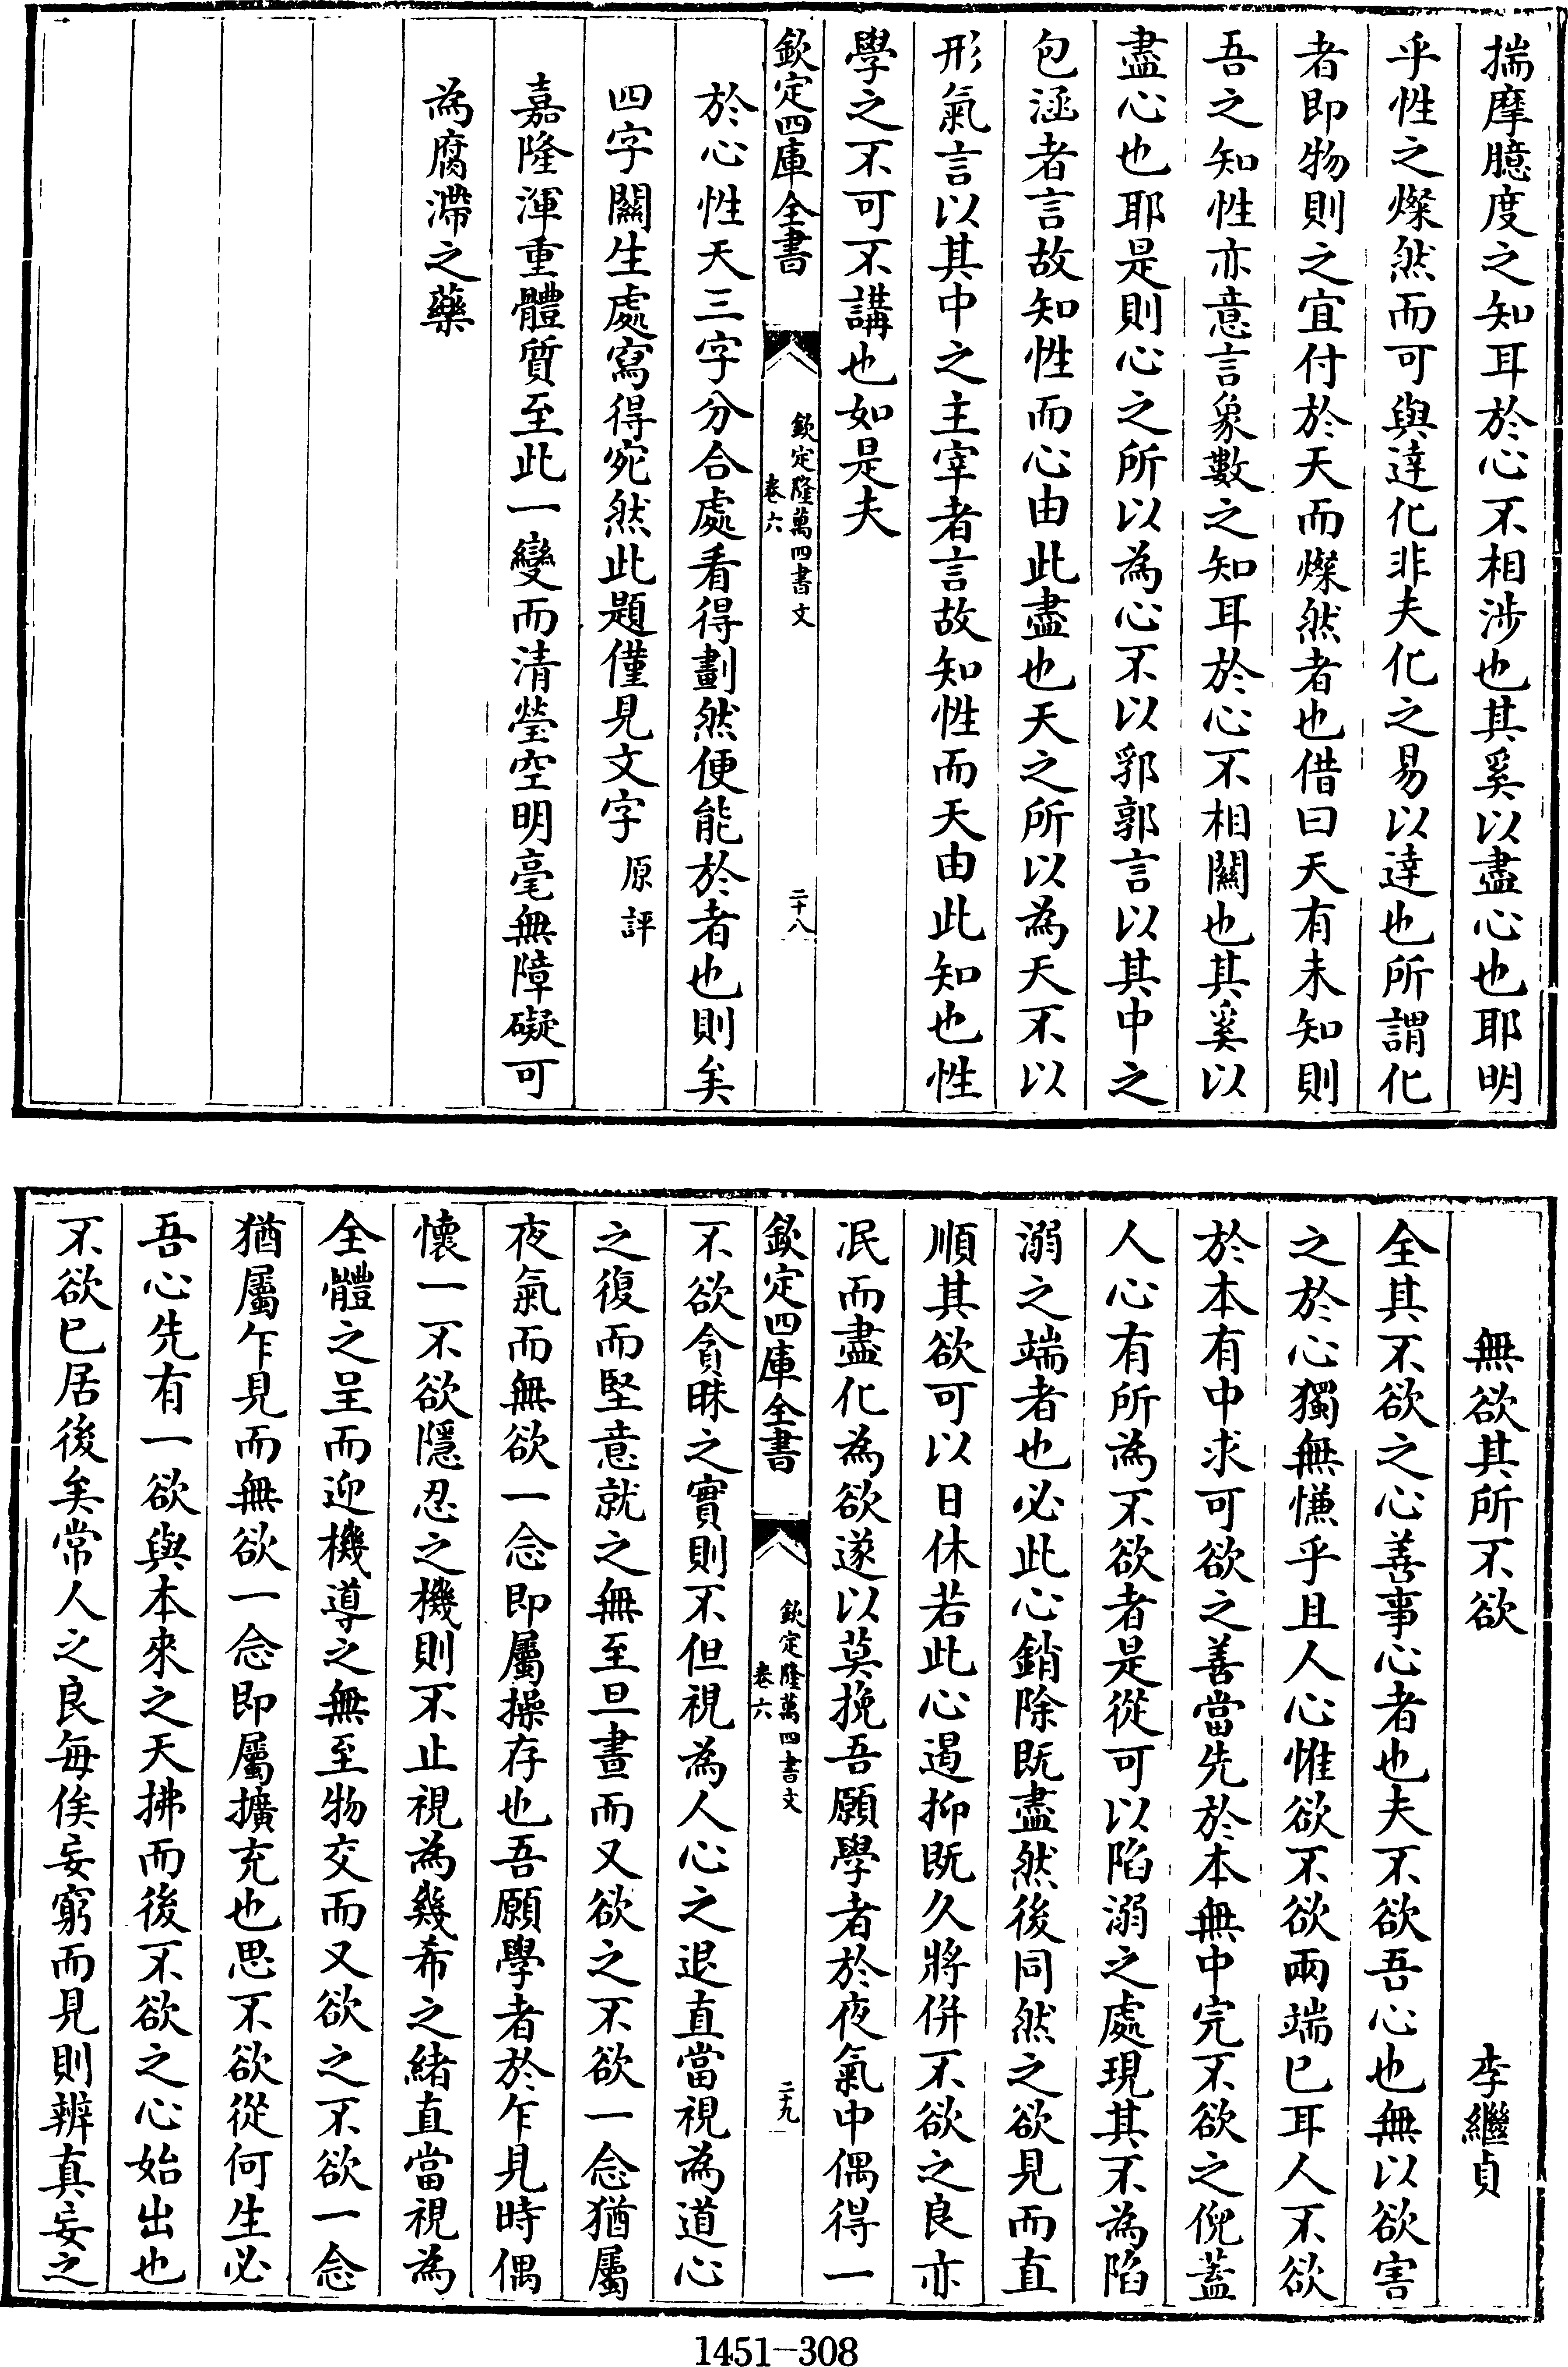 揣摩臆度之知耳於心不相涉也其奚以盡心也耶明
乎性之燦然而可與達化非夫化之易以達也所謂化
者即物則之宜付於天而燦然者也借曰天有未知則
吾之知性亦意言象數之知耳於心不相關也其奚以
盡心也耶是則心之所以為心不以郛郭言以其中之
包涵者言故知性而心由此盡也天之所以為天不以
形氣言以其中之主宰者言故知性而天由此知也性
學之不可不講也如是夫
欽定四庫全書
欽定隆萬四書文
卷六
二十八
於心性天三字分合處看得劃然便能於者也則矣
四字關生處寫得宛然此題僅見文字 原評
嘉隆渾重體質至此一變而清瑩空明毫無障礙可
為腐滯之藥
無欲其所不欲 李繼貞
全其不欲之心善事心者也夫不欲吾心也無以欲害
之於心獨無慊乎且人心惟欲不欲兩端已耳人不欲
於本有中求可欲之善當先於本無中完不欲之倪蓋
人心有所為不欲者是從可以陷溺之處現其不為陷
溺之端者也必此心銷除既盡然後同然之欲見而直
順其欲可以日休若此心遏抑既久將併不欲之良亦
泯而盡化為欲遂以莫挽吾願學者於夜氣中偶得一
欽定四庫全書
欽定隆萬四書文
卷六
二十九
不欲貪昧之實則不但視為人心之退直當視為道心
之復而堅意就之無至旦晝而又欲之不欲一念猶屬
夜氣而無欲一念即屬操存也吾願學者於乍見時偶
懷一不欲隱忍之機則不止視為幾希之緒直當視為
全體之呈而迎機導之無至物交而又欲之不欲一念
猶屬乍見而無欲一念即屬擴充也思不欲從何生必
吾心先有一欲與本來之天拂而後不欲之心始出也
不欲已居後矣常人之良每俟妄窮而見則辨真妄之
1451-308